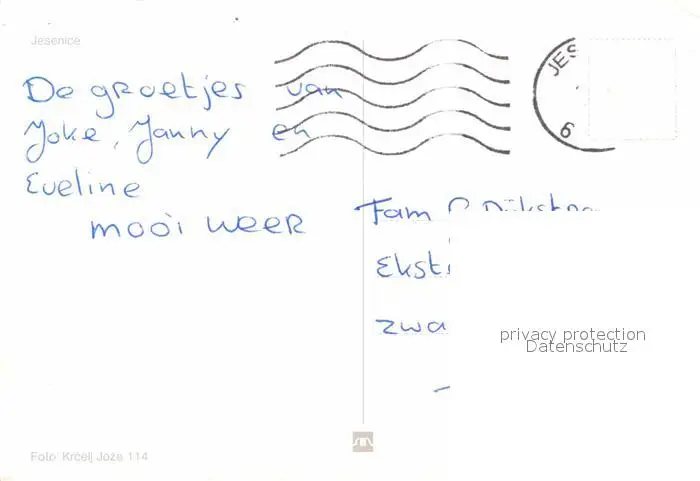 Jesenice
JES
6
De groetjes van
Joke, Janny en
Eveline
mooi weer
Fam
privacy protection
Datenschutz
Foto: Krčelj Jože 114